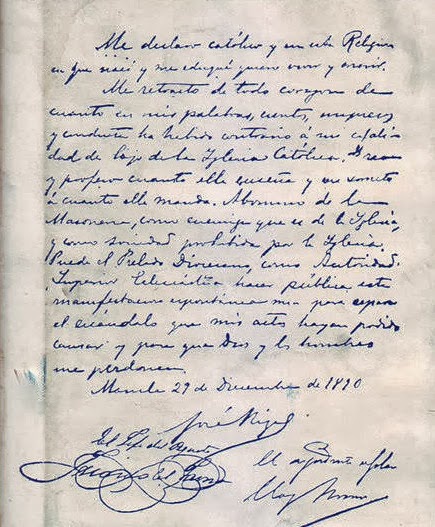 Me declaro católico y en esta Religion
en que nací y me eduqué quiero vivir y morir.
Me retracto de todo corazon de
cuanto en mis palabras, escritos, impresos
y conducta ha habido contrario á mi cuali-
dad de hijo de la Iglesia Católica. Creo
y profeso cuanto ella enseña y me someto
á cuanto ella manda. Abomino de la
Masonería, como enemiga que es de la Iglesia,
y como sociedad prohibida por la Iglesia.
Puede el Prelado Diocesano, como Autoridad
Superior Eclesiástica hacer pública esta
manifestacion espontánea mia para reparar
el escándalo que mis actos hayan podido
causar y para que Dios y los hombres
me perdonen.
Manila 29 de Diciembre de 1890
José Rizal
El Jefe del Piquete
El ayudante de Plaza
del Fresno
Eloy Moure